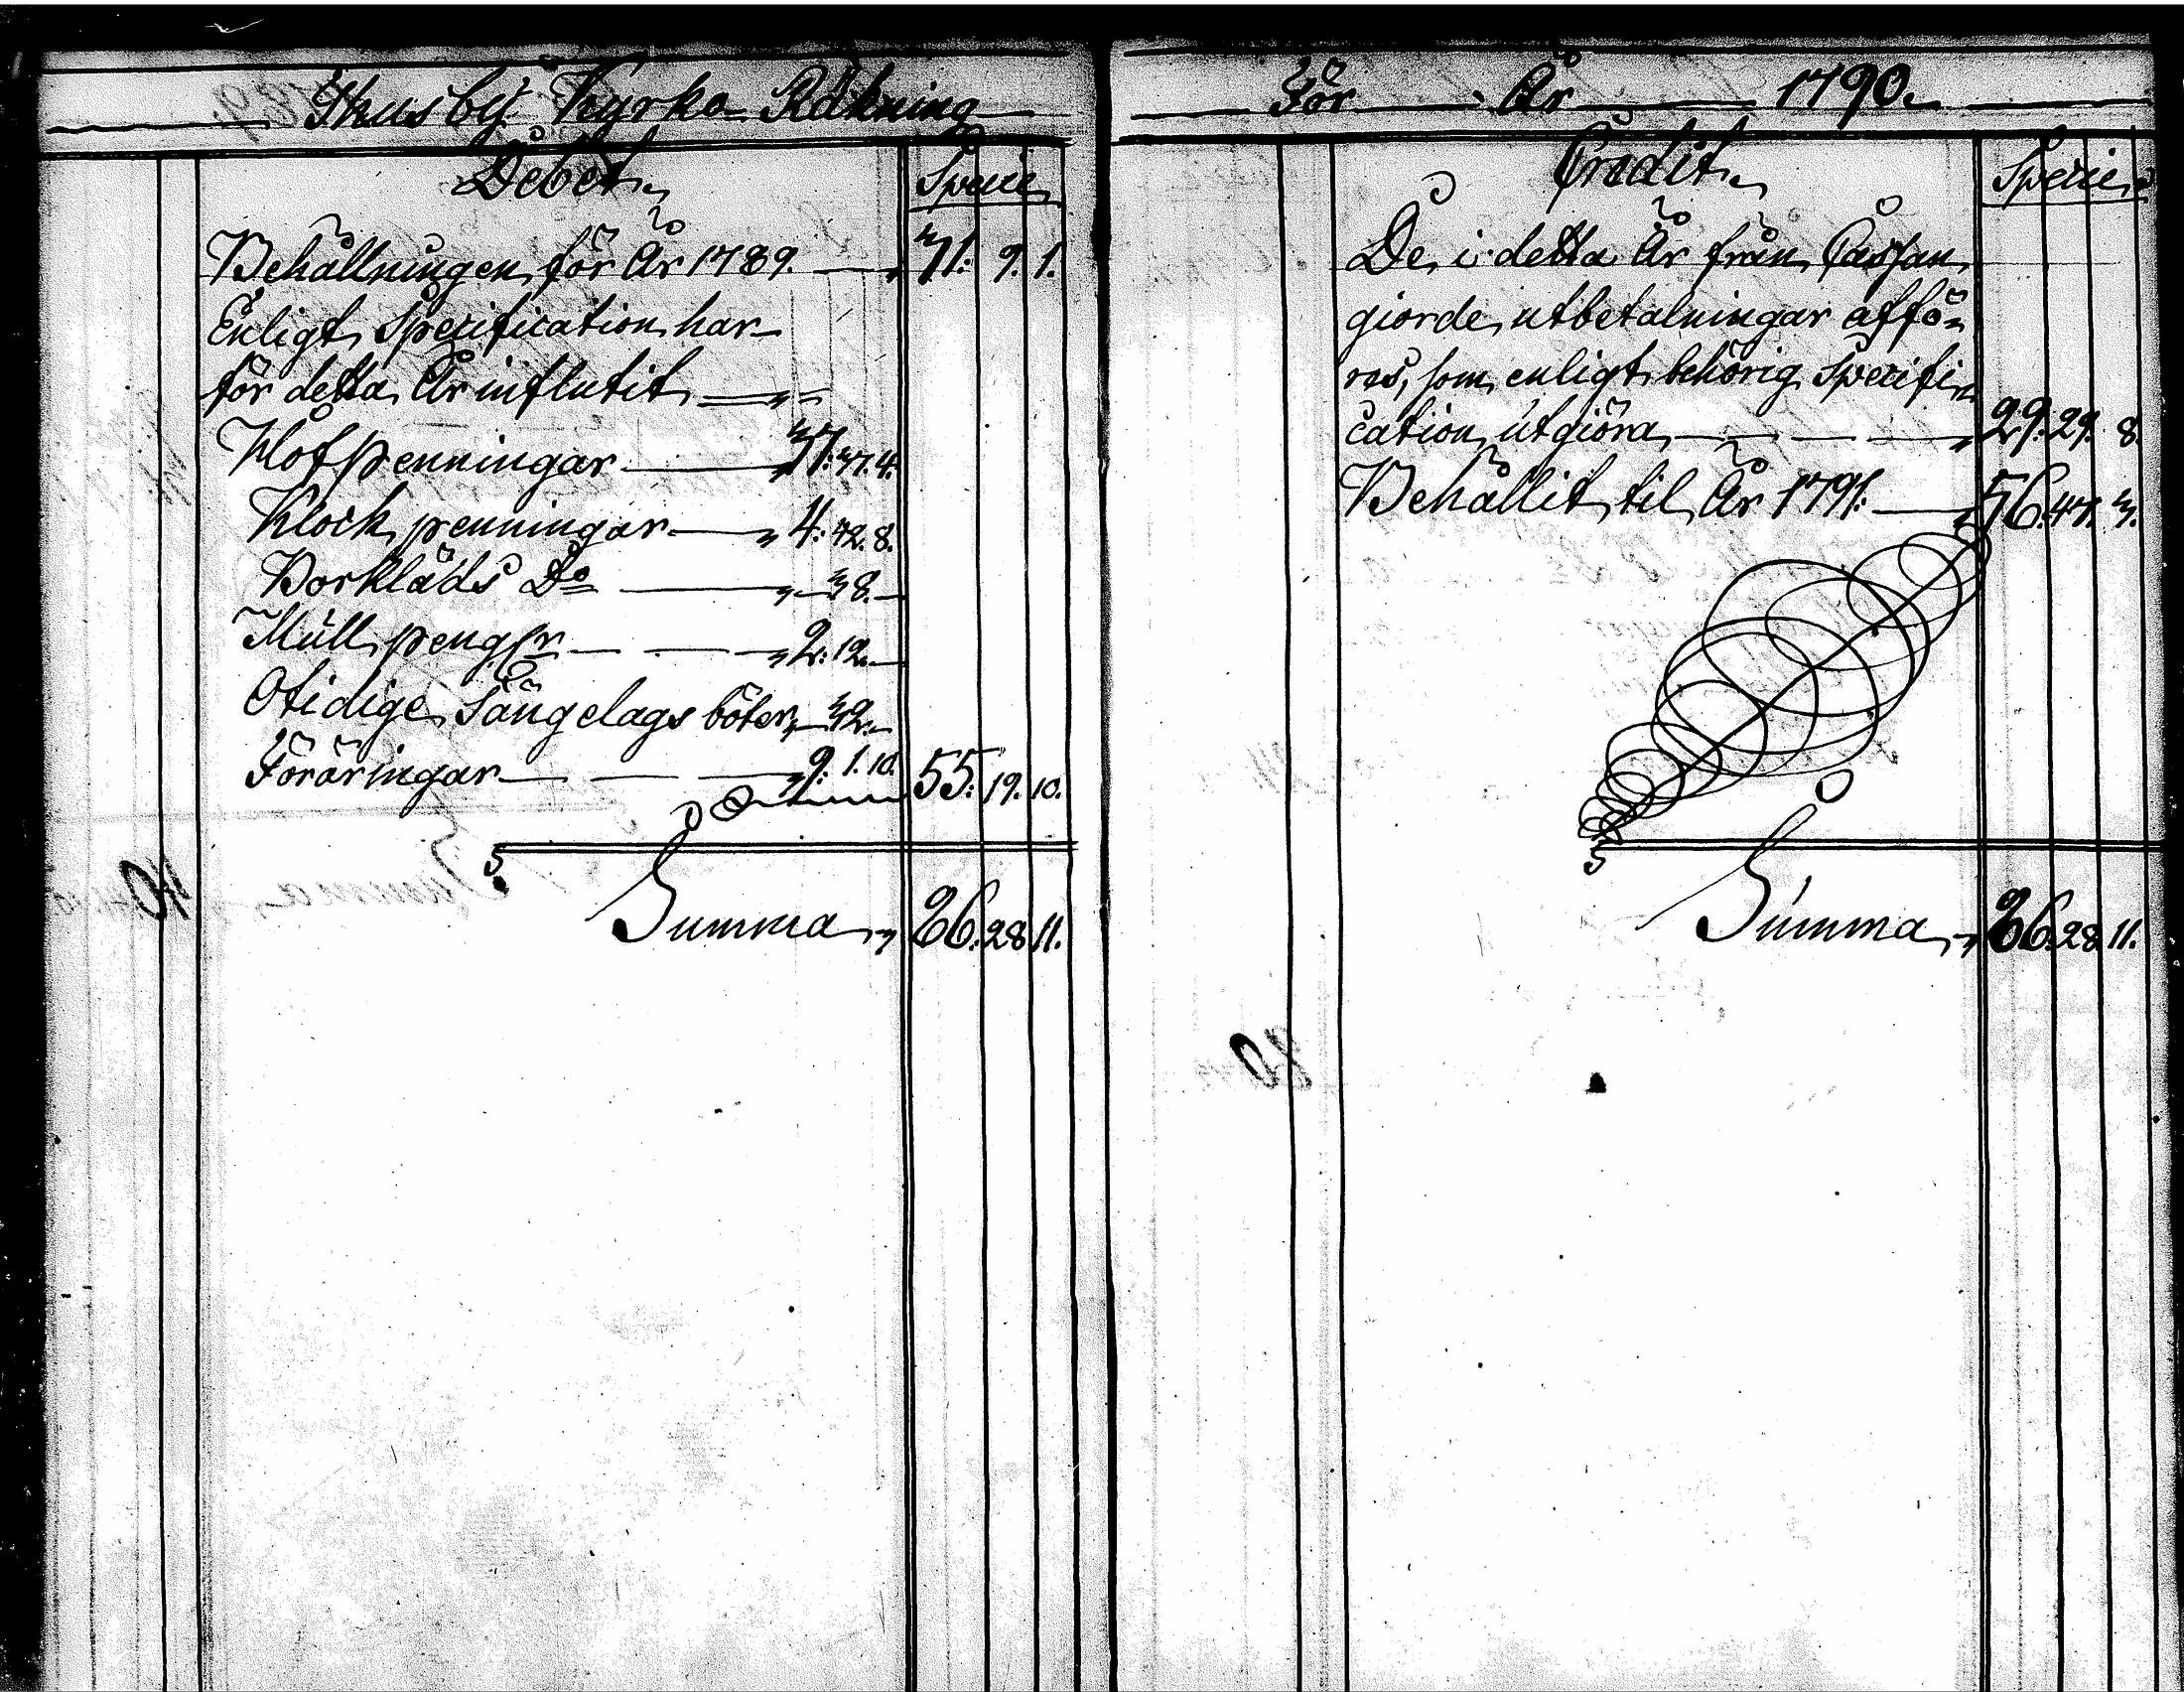 Thusby Kyrko Räkning
Debet.
Specie
Behållningen för År 1789. 31: 9. 1.
Enligt Specification har
för detta År influtit
Håfpenningar 37: 37. 4.
Klockpenningar 4: 42. 8.
Borkläds Do 38.
Mullpengar 2: 12.
Otidige Sängelags böter, 32.
Föräringar 9: 1. 10. 55: 19. 10.
Summa 86. 28. 11.
För År 1790.
Credit.
Specie
De i detta År från Cassan
giorde utbetalningar affö-
ras, som enligt behörig Specifi-
cation utgiöra 29: 29. 8.
Behållit til År 1791. 56. 47. 3.
Summa 86. 28. 11.